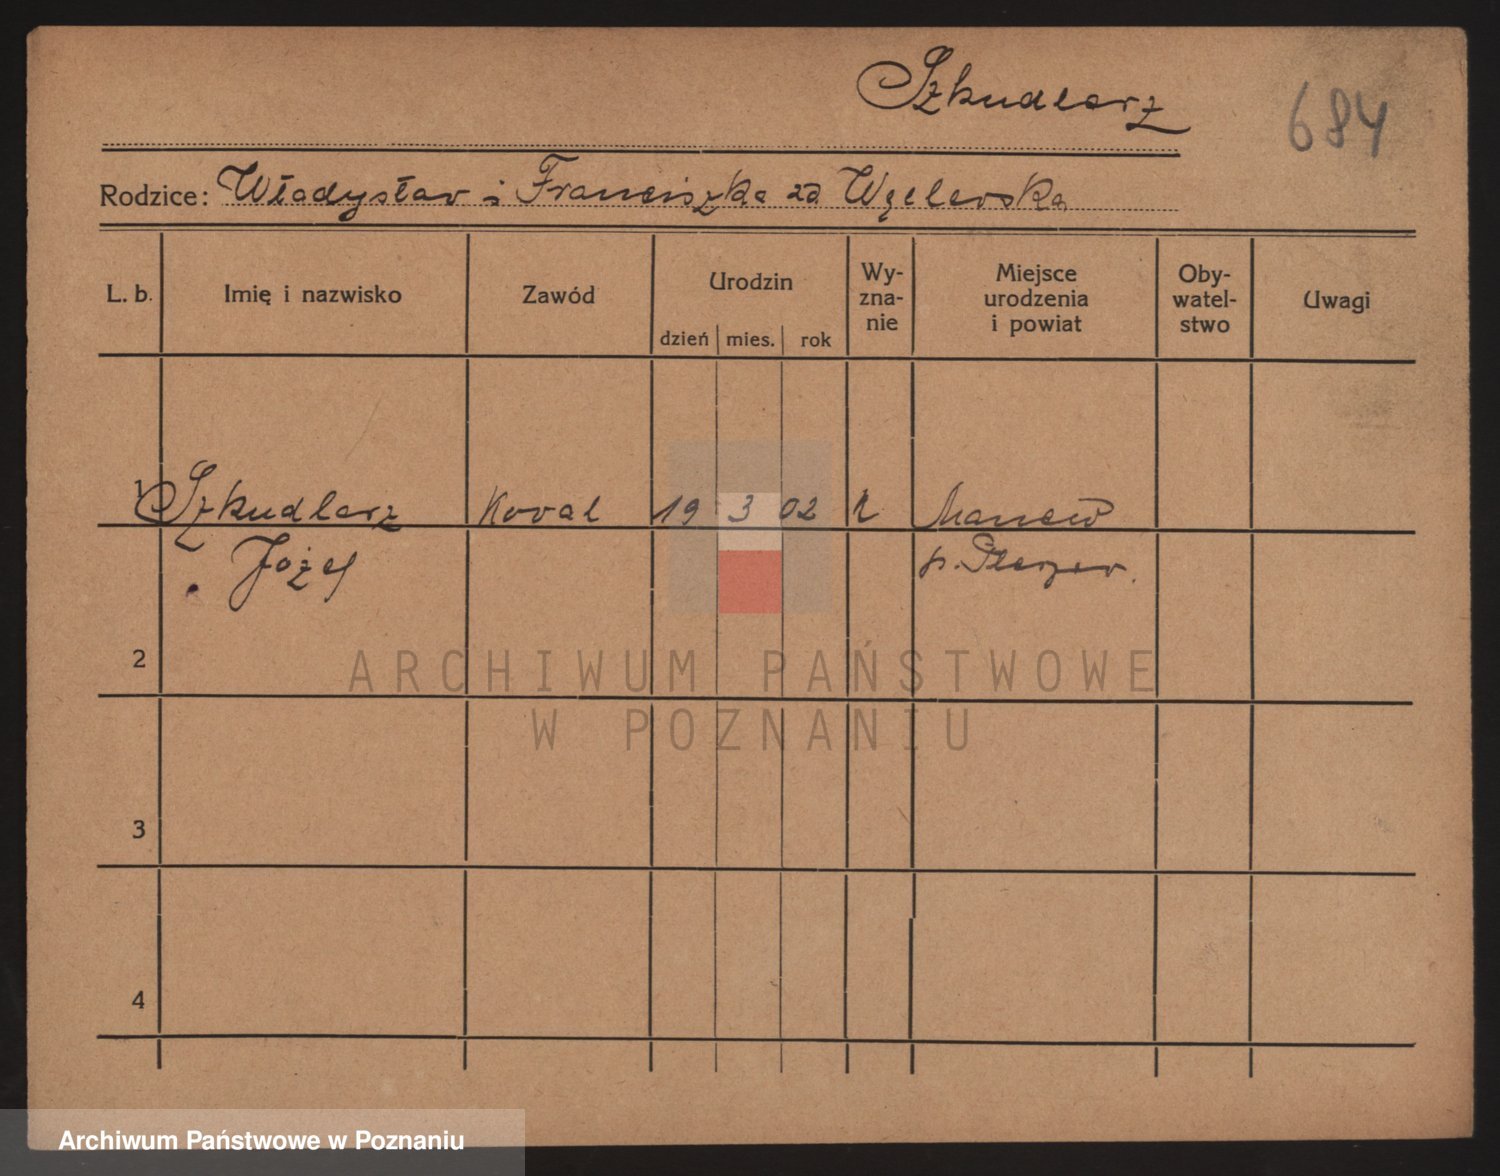 Szkudlarz
684
Rodzice: Władysław i Franciszka zd Węclewska
L. b. Imię i nazwisko Zawód Urodzin Wy-zna-nie Miejsce urodzenia i powiat Oby-watel-stwo Uwagi
dzień mies. rok
1 Szkudlarz Kowal 19 3 02 Maniew
Józef p.
2
ARCHIWUM PAŃSTWOWE
W POZNANIU
3
4
Archiwum Państwowe w Poznaniu